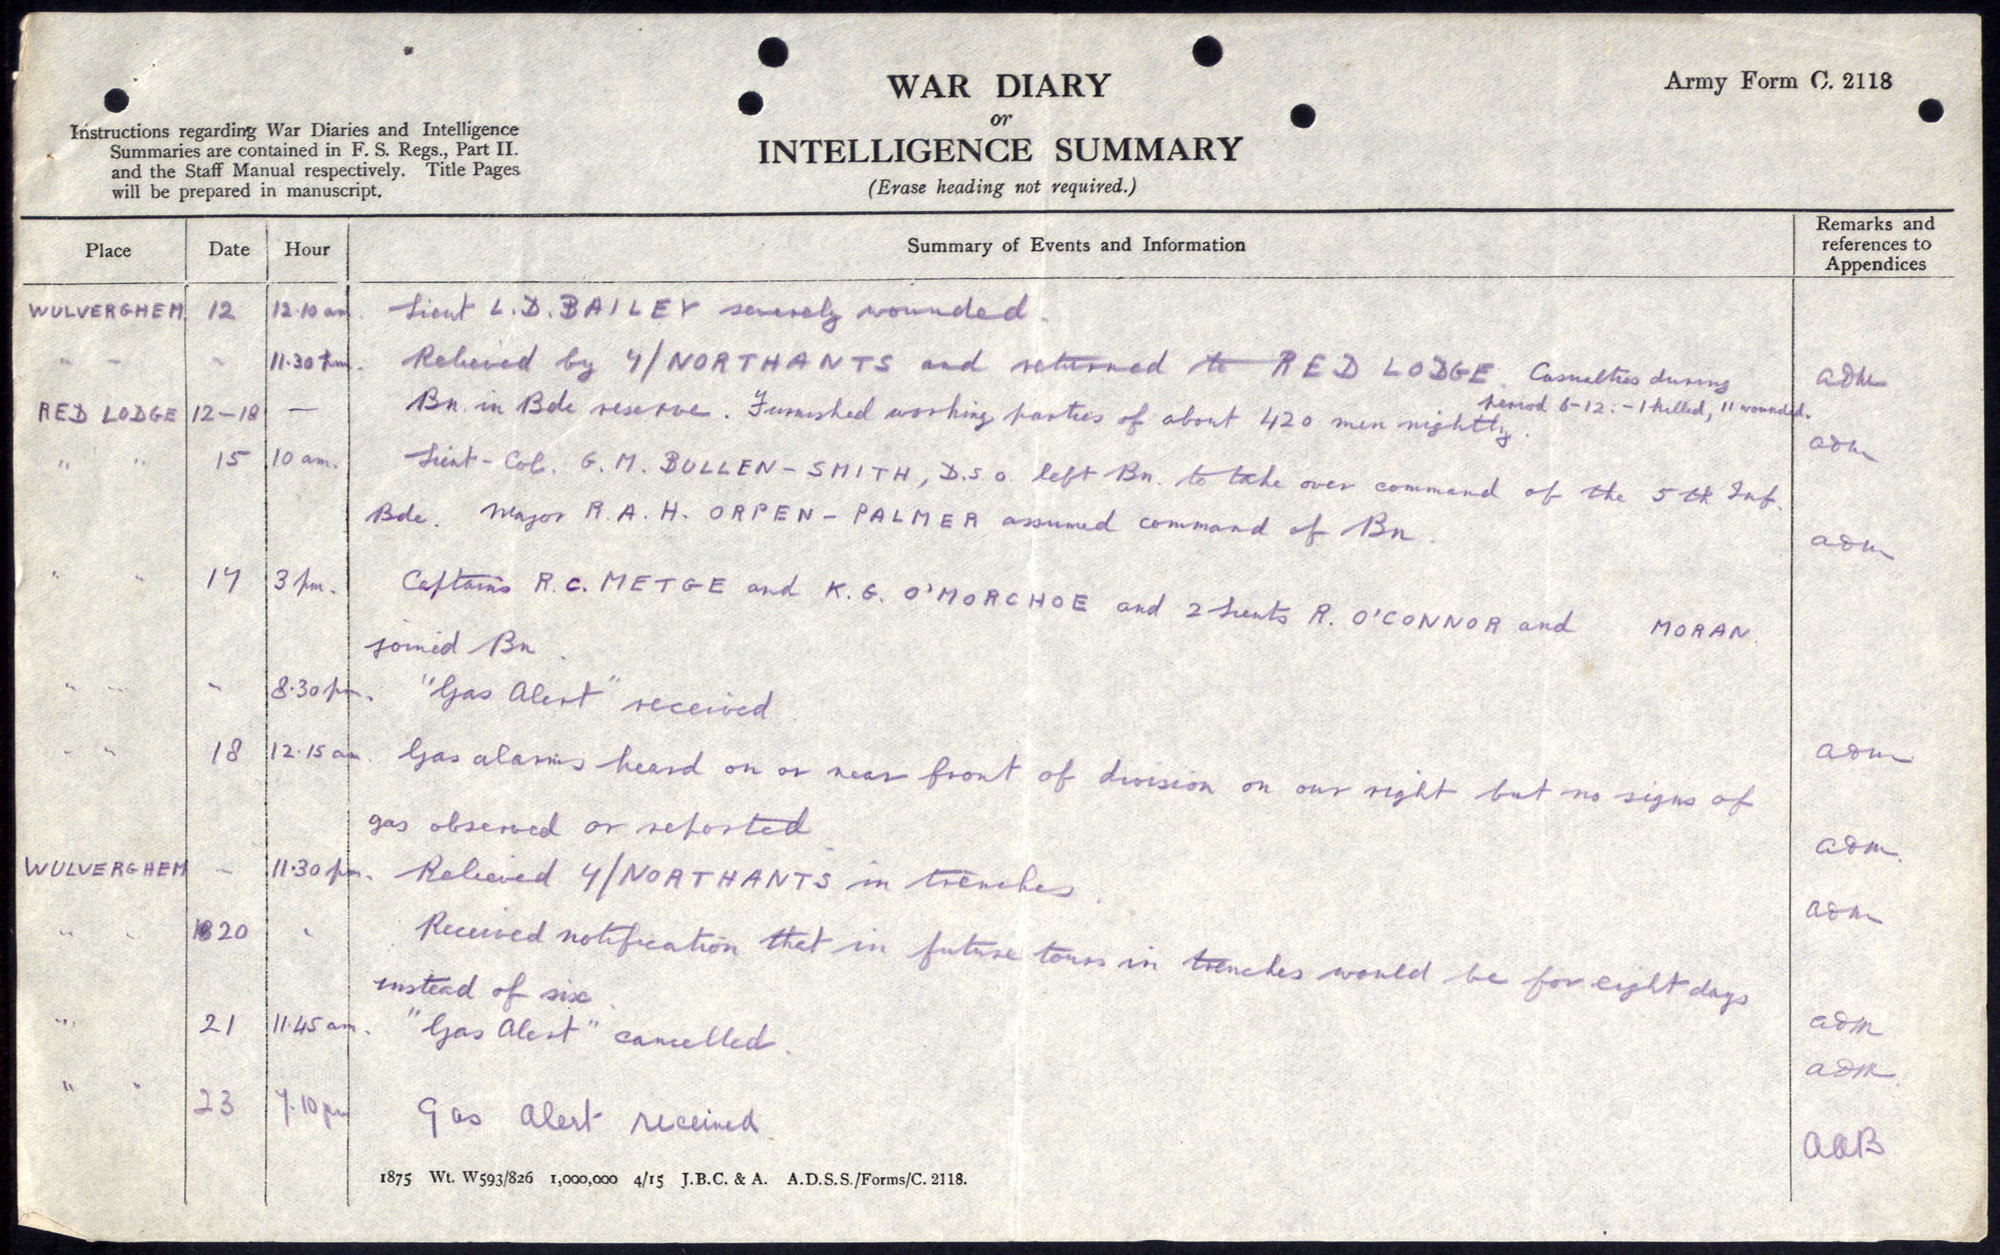 Army Form C. 2118
WAR DIARY
or
INTELLIGENCE SUMMARY
(Erase heading not required.)
Instructions regarding War Diaries and Intelligence
Summaries are contained in F. S. Regs., Part II.
and the Staff Manual respectively. Title Pages
will be prepared in manuscript.
Place Date Hour Summary of Events and Information Remarks and references to Appendices
WULVERGHEM 12 12.10 am. Lieut L.D. BAILEY severely wounded.
" " " 11.30 pm. Relieved by 7/NORTHANTS and returned to RED LODGE. Casualties during adm
period 6-12: - 1 killed, 11 wounded.
RED LODGE 12-18 — Bn. in Bde reserve. Furnished working parties of about 420 men nightly. adm
" " 15 10 am. Lieut-Col. G.M. BULLEN-SMITH, D.S.O. left Bn. to take over command of the 5th Inf.
Bde. Major R.A.H. ORPEN-PALMER assumed command of Bn. adm
" " 17 3 pm. Captains R.C. METGE and K.G. O'MORCHOE and 2 Lieuts R. O'CONNOR and MORAN
joined Bn.
" " " 8.30 pm. "Gas Alert" received adm
" " 18 12.15 am. Gas alarms heard on or near front of division on our right but no signs of
gas observed or reported adm.
WULVERGHEM " 11.30 pm. Relieved 7/NORTHANTS in trenches. adm
" " 20 " Received notification that in future tours in trenches would be for eight days
instead of six. adm
" " 21 11.45 am. "Gas Alert" cancelled. adm.
" " 23 7.10 pm Gas Alert received AAB
1875 Wt. W593/826 1,000,000 4/15 J.B.C. & A. A.D.S.S./Forms/C. 2118.